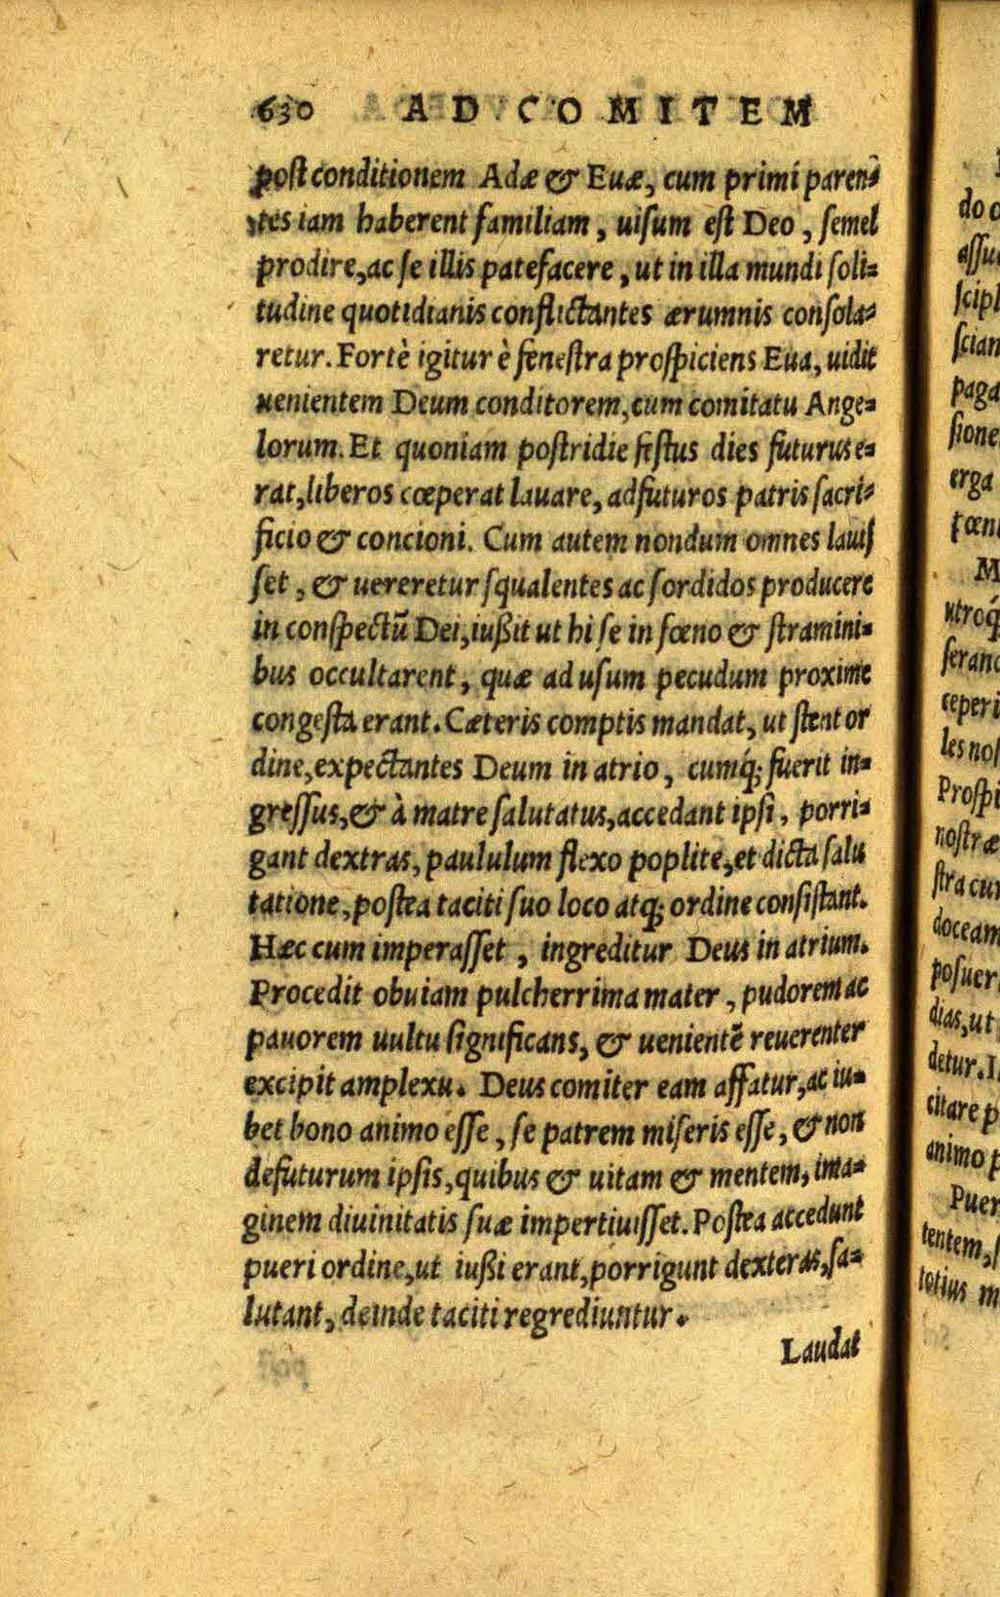 630 AD COMITEM
post conditionem Adæ & Euæ, cum primi paren⸗
tes iam haberent familiam, uiſum eſt Deo, ſemel
prodire, ac ſe illis patefacere, ut in illa mundi ſoli⸗
tudine quotidianis conflictantes ærumnis conſola⸗
retur. Fortè igitur è feneſtra proſpiciens Eua, uidit
uenientem Deum conditorem, cum comitatu Ange⸗
lorum. Et quoniam poſtridie feſtus dies futurus e⸗
rat, liberos cœperat lauare, adfuturos patris ſacri⸗
ficio & concioni. Cum autem nondum omnes lauiſ
ſet, & uereretur ſqualentes ac ſordidos producere
in conſpectũ Dei, iußit ut hi ſe in fœno & ſtramini⸗
bus occultarent, quæ ad uſum pecudum proxime
congeſta erant. Cæteris comptis mandat, ut ſtent or
dine, expectantes Deum in atrio, cumq́; fuerit in⸗
greſſus, & à matre ſalutatus, accedant ipſi, porri⸗
gant dextras, paululum flexo poplite, et dicta ſalu
tatione, poſtea taciti ſuo loco atq; ordine conſiſtant.
Hæc cum imperaſſet, ingreditur Deus in atrium.
Procedit obuiam pulcherrima mater, pudorem ac
pauorem uultu ſignificans, & uenientẽ reuerenter
excipit amplexu. Deus comiter eam affatur, ac iu⸗
bet bono animo eſſe, ſe patrem miſeris eſſe, & non
defuturum ipſis, quibus & uitam & mentem, ima⸗
ginem diuinitatis ſuæ impertiuiſſet. Poſtea accedunt
pueri ordine, ut iußi erant, porrigunt dexteras, ſa⸗
lutant, deinde taciti regrediuntur.
Laudat